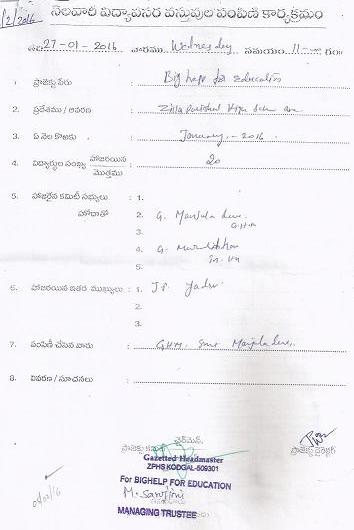 నెలవారి విద్యావసర వస్తువుల పంపిణి కార్యక్రమం
/2/2016
తేది 27-01-2016 వారము Wednesday సమయం 11- గం
1. ప్రాజెక్టు పేరు : Big help for Education
2. ప్రదేశము / ఆవరణ : Zilla Parishad High
3. ఏ నెల కొరకు : January - 2016
4. విద్యార్థుల సంఖ్య హాజరయిన : 20
మొత్తము
5. హాజరైన కమిటీ సభ్యులు : 1.
హోదాతో 2. G. Manjula devi
G.H.M
3.
4. G.
5.
6. హాజరయిన ఇతర ముఖ్యులు : 1. J.P. Yadav
2.
3.
7. పంపిణీ చేసిన వారు : GHM. Smt Manjula devi
8. వివరణ / సూచనలు :
ఛైర్మెన్,
ప్రాజెక్టు డైరెక్టర్
Gazetted Headmaster
ZPHS KODGAL-509301
For BIGHELP FOR EDUCATION
M. Sarojini
MANAGING TRUSTEE